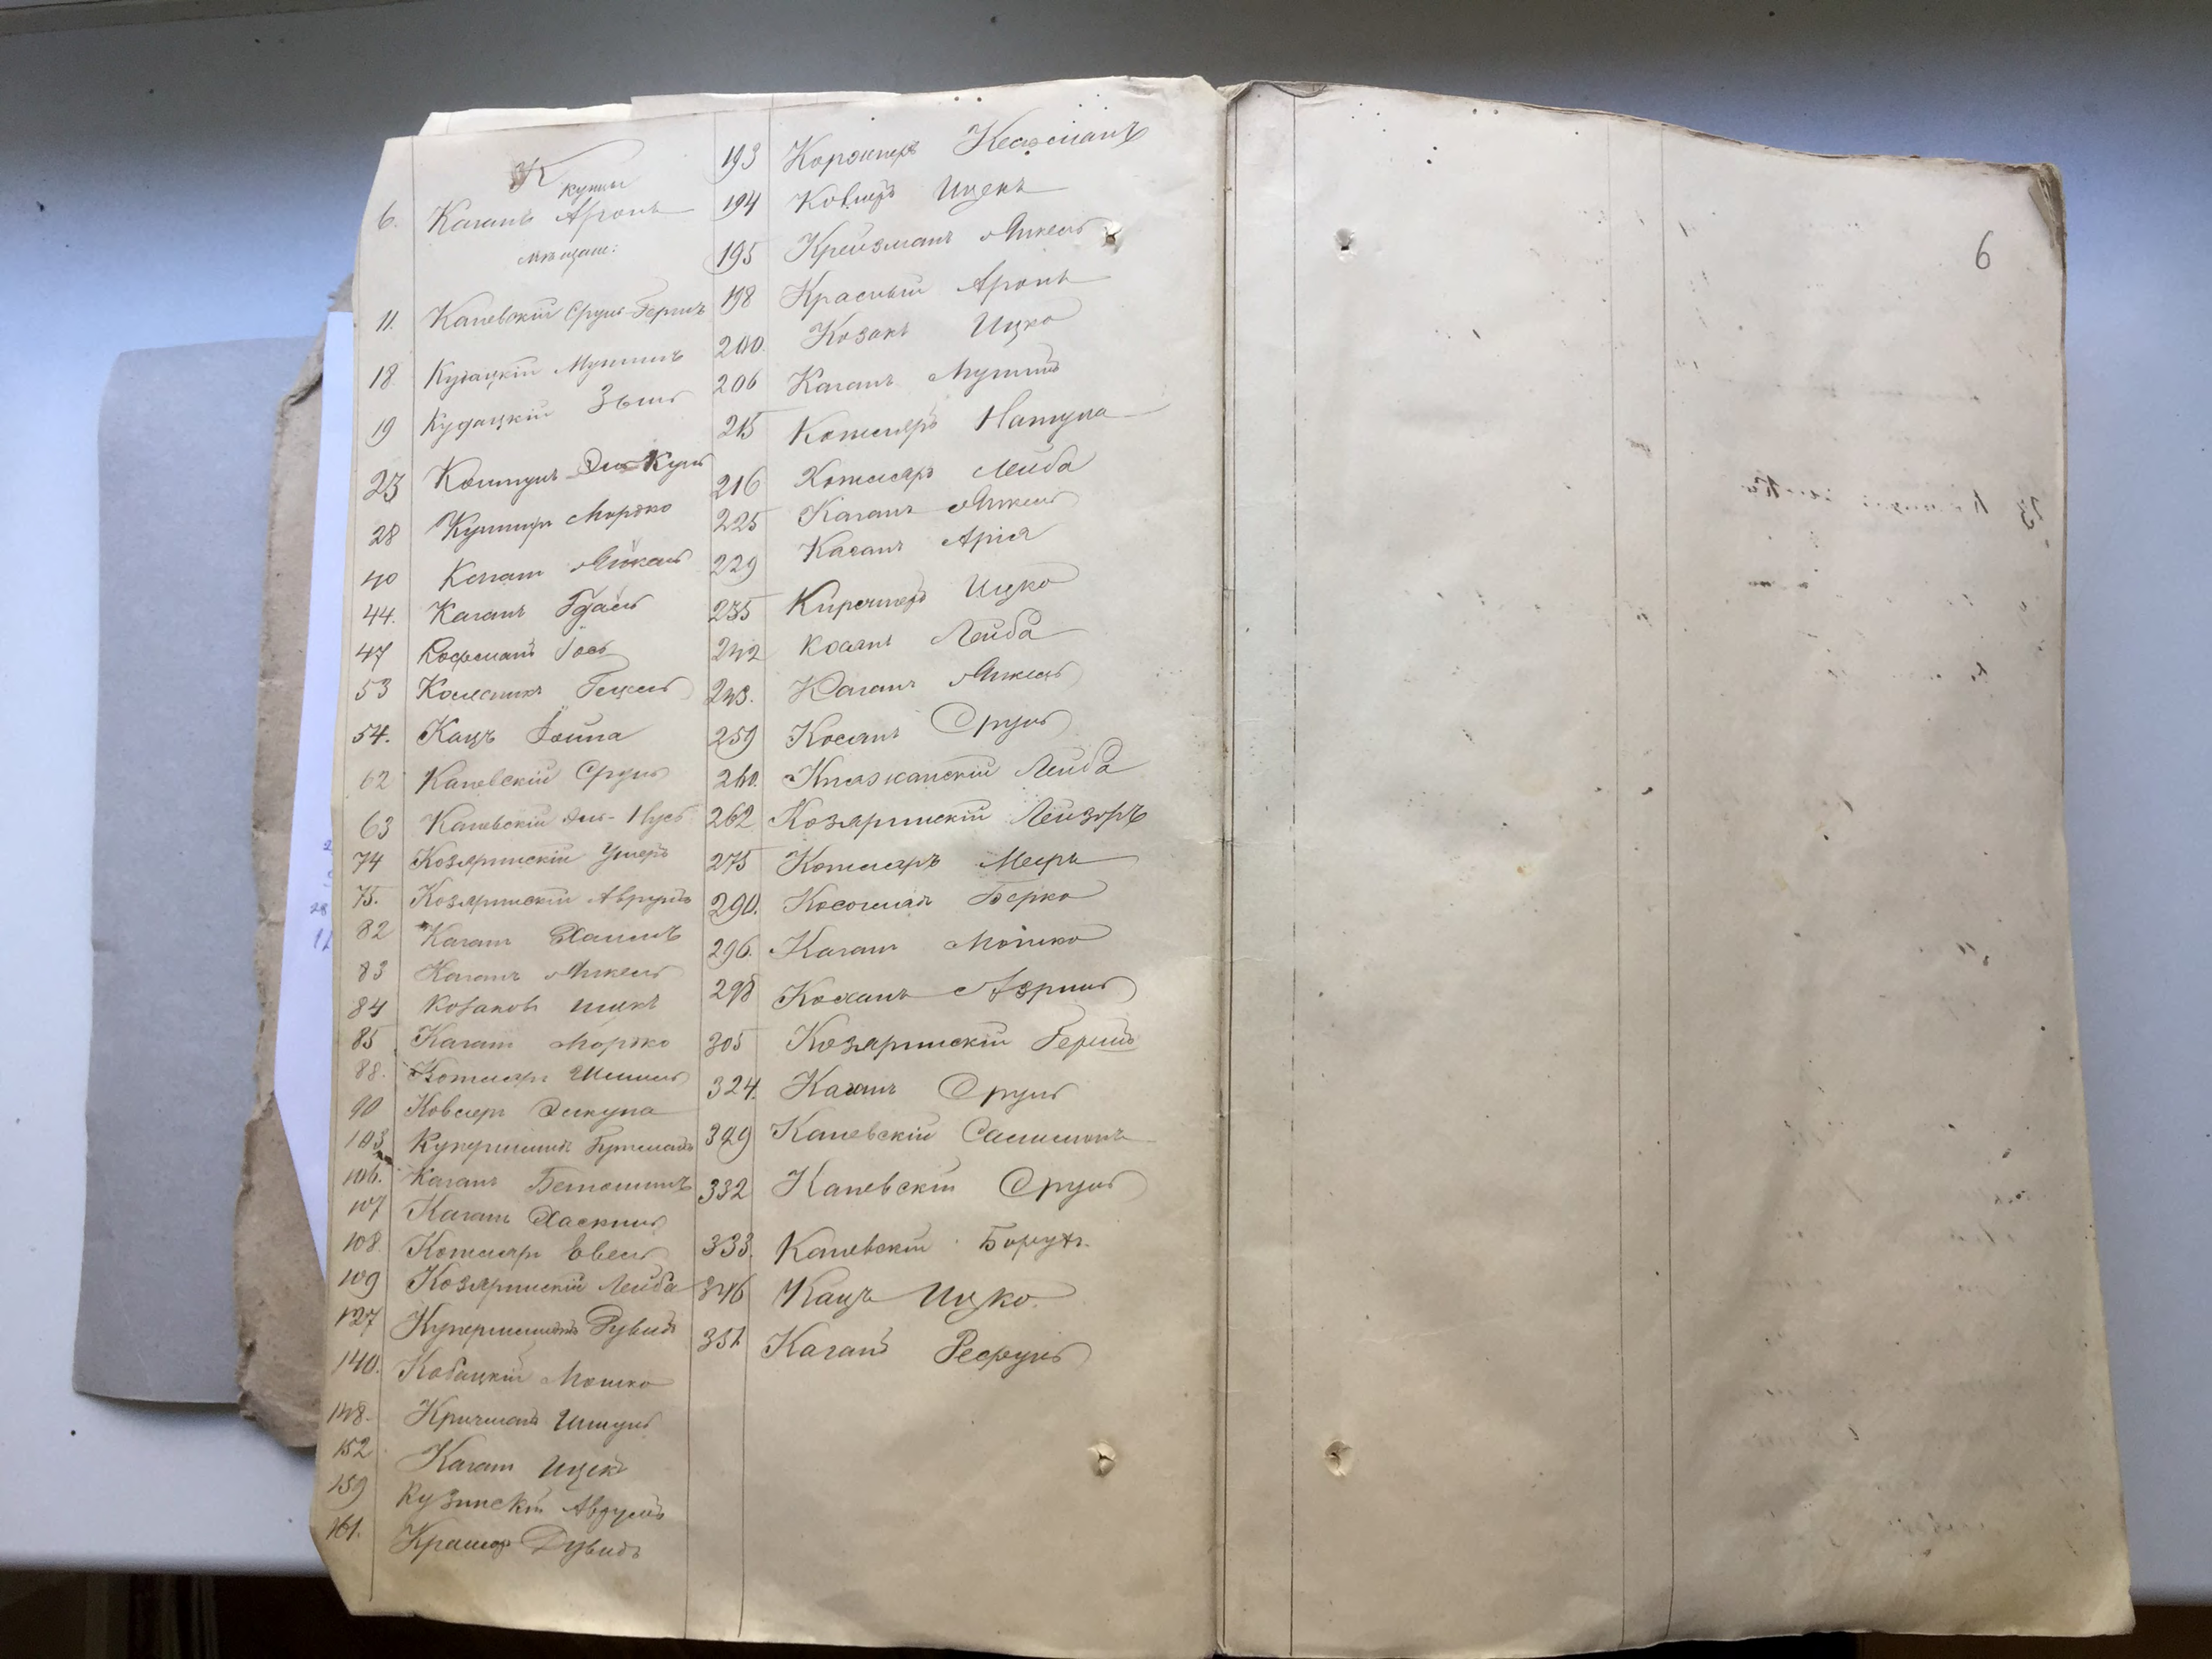 К
купцы
6. Каганъ Аронъ
мѣщане:
11. Каневскій Сруль-Гершъ
18 Кудацкій Мутинъ
19 Кудацкій Зъ
23 Колтунъ
28 Кушниръ Мордко
40 Каганъ Янкель
44. Каганъ Гдаль
47 Кофманъ Іось
53 Колесникъ Гецель
54. Кацъ Хоина
62 Каневскій Сруль
63 Каневскій Нусъ
74 Козяринскій Ушеръ
75. Козяринскій Аврумъ
82 Каганъ Хаимъ
83 Каганъ Янкель
84 Козаковъ Ицикъ
85 Каганъ Мордко
88. Котляръ Шмиль
90 Ковлеръ Зискупа
103
106. Каганъ Беньоминъ
107 Каганъ Хаскиль
108. Котляръ Евель
109 Козяринскій Лейба
127 Купершмидтъ Дувидъ
140. Кобацкій Мошко
148. Кричманъ Шмуль
152 Каганъ Ицекъ
159 Кузинскій Аврумъ
161. Крамаръ Дувидъ
193 Коржнеръ
194 Ковлеръ Ицекъ
195 Крейзманъ Янкель
198 Красный Аронъ
200. Козакъ Ицко
206 Каганъ
215 Котляръ Натула
216 Котляръ Лейба
225 Каганъ Янкель
229 Каганъ Арія
235 Кирснеръ Ицко
242 Коганъ Лейба
243. Каганъ Янкель
259 Сруль
260. Княжанскій Лейба
262 Козяринскій Лейзоръ
275 Котляръ Меиръ
290. Берко
296. Каганъ Мошко
298 Коханъ Азриль
305 Козяринскій Гершъ
324. Каганъ Сруль
329 Каневскій Саломонъ
332 Каневскій Сруль
333. Каневскій Борухъ.
346 Кацъ Ицко.
351 Каганъ Рефуль
6